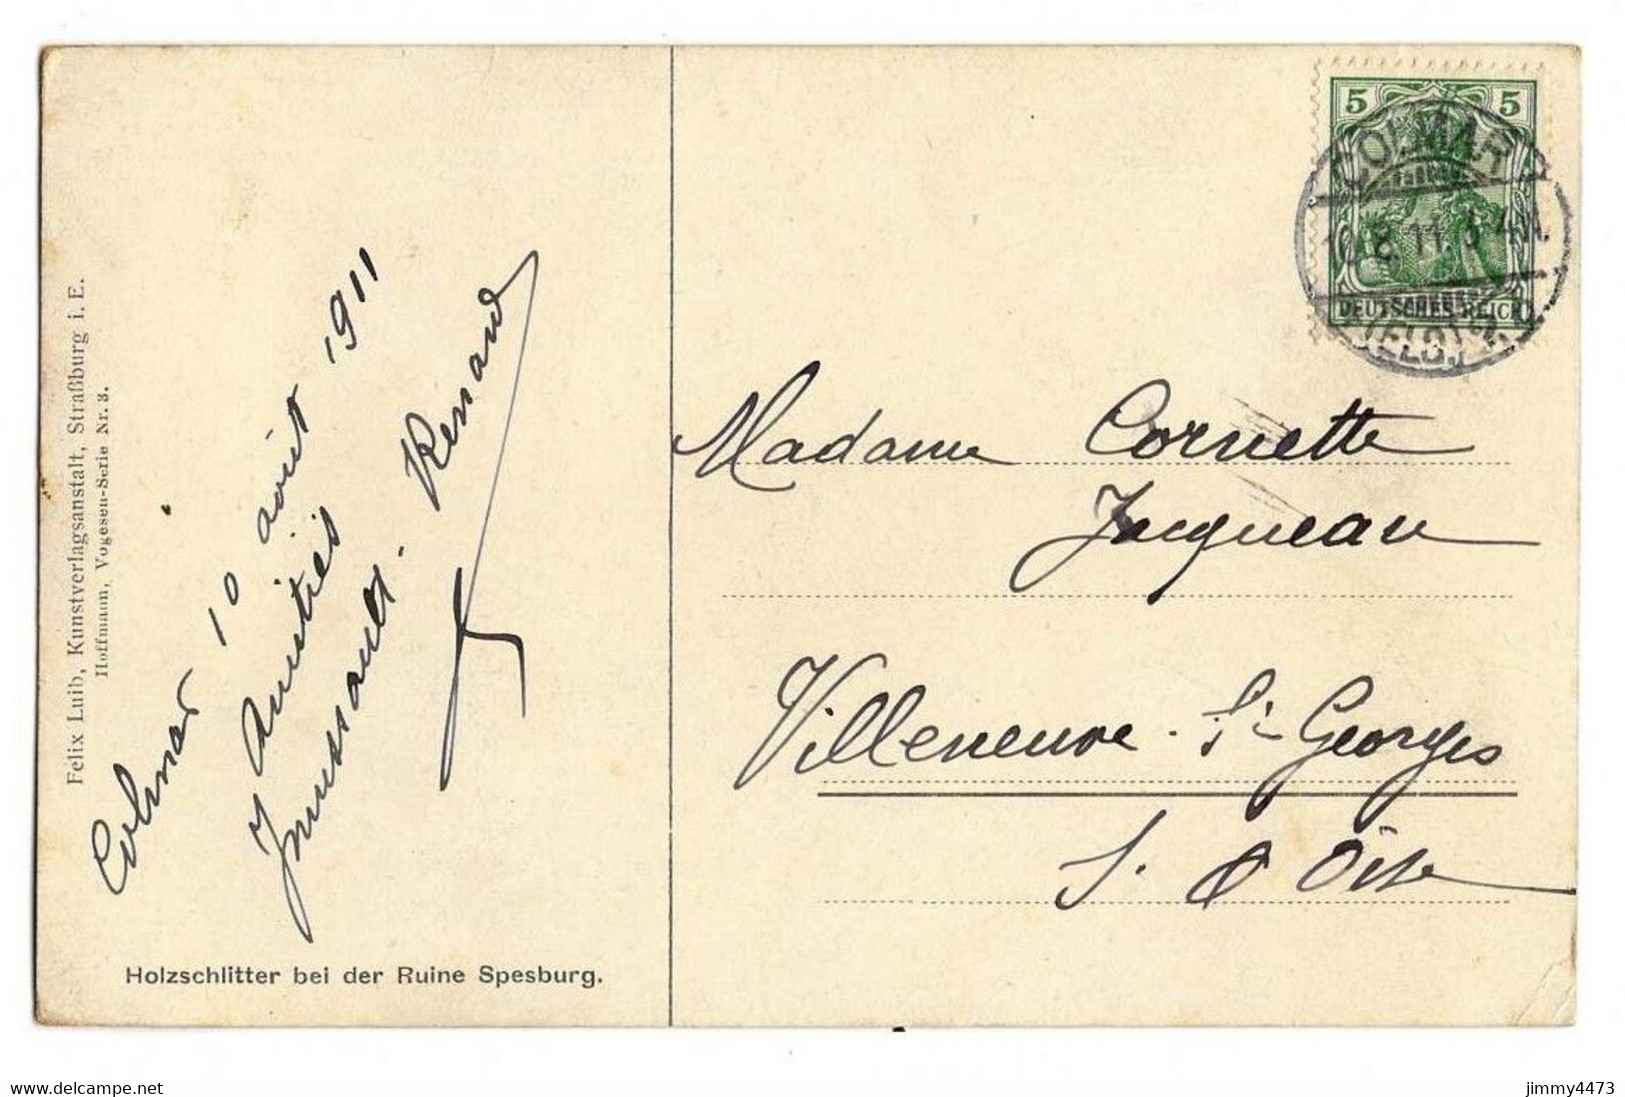 Felix Luib, Kunstverlagsanstalt, Straßburg i. E.
Hoffmann, Vogesen-Serie Nr. 3.
Colmar 10 août 1911
Amitiés
Renard
Holzschlitter bei der Ruine Spesburg.
5 5
DEUTSCHES REICH
COLMAR
10.8.11.
(ELS.)
Madame Cornette
Jacqueau
Villeneuve-St-Georges
S. & Oise
www.delcampe.net
jimmy4473